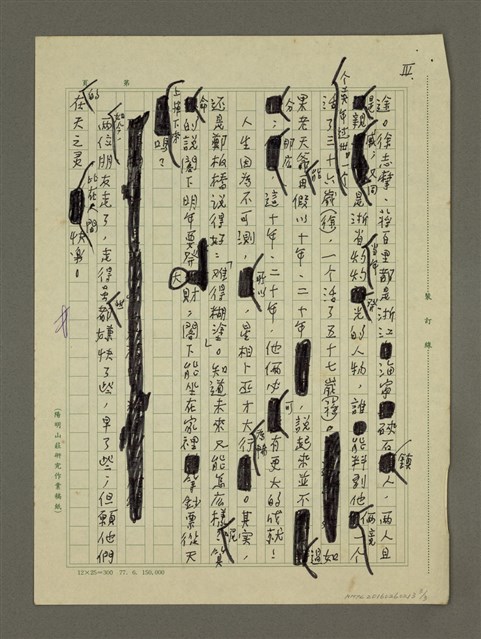 III.
途。徐志摩、蔣百里都是浙江海寧硤石鎮人，兩人且
是親戚；又同是浙省當年灼灼發光的人物，誰能料到他倆竟一個
活了三十六歲(徐)，一個活了五十七歲(蔣)。如
果老天爺再假以十年、二十年，說起來並不過
分；那麼，這十年、二十年，他倆必可有更大的成就！
人生因為不可測，所以，星相卜巫才大行其道。其實，
還是鄭板橋說得好：「難得糊塗。」知道未來又能怎麼樣呢？算
命的說閣下明年要發大財，閣下能坐在家裡等鈔票從天
上掉下來嗎？
兩位朋友走了，走得都嫌快了些，早了些；但願他們
的在天之灵比在人間快樂。
第 頁
裝訂線
(陽明山莊研究作業稿紙)
12×25=300 77. 6. 150,000